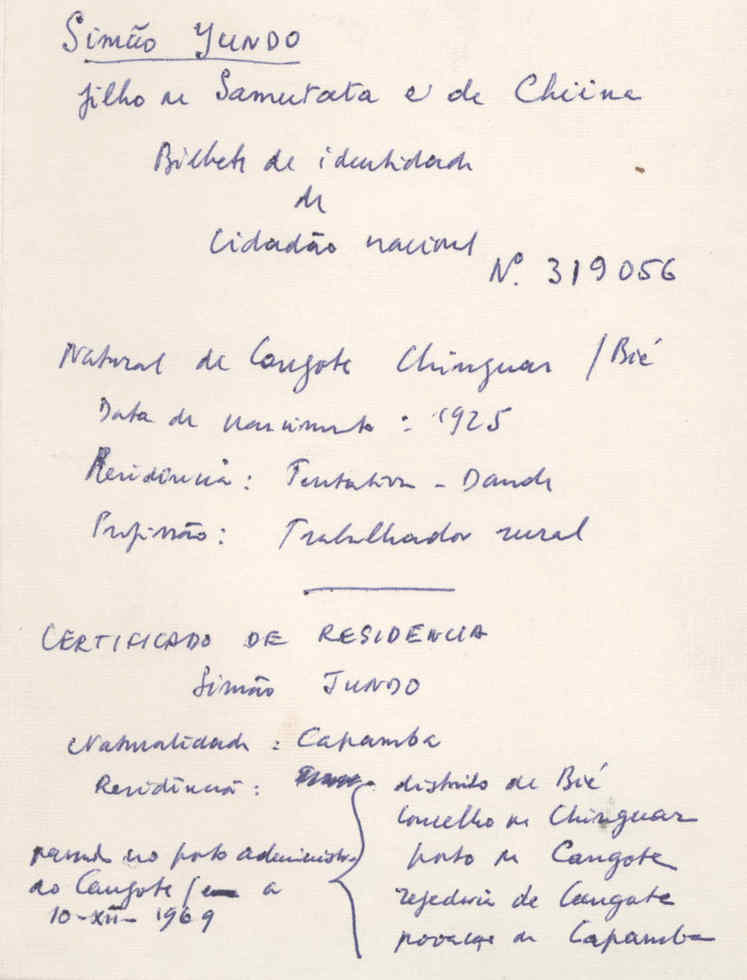 Simão YUNDO
filho de Samutata e de Chiina
Bilhete de identidade
de
Cidadão nacional
Nº. 319056
Natural de Cangote Chinguar / Bié
Data de nascimento : 1925
Residência : Tentativa - Dande
Profissão : Trabalhador rural
CERTIFICADO DE RESIDENCIA
Simão JUNDO
Naturalidade : Capamba
Residência :
distrito de Bié
Concelho de Chinguar
posto de Cangote
regedoria de Cangote
povoação de Capamba
passado no posto administ.
do Cangote / a
10-XII- 1969